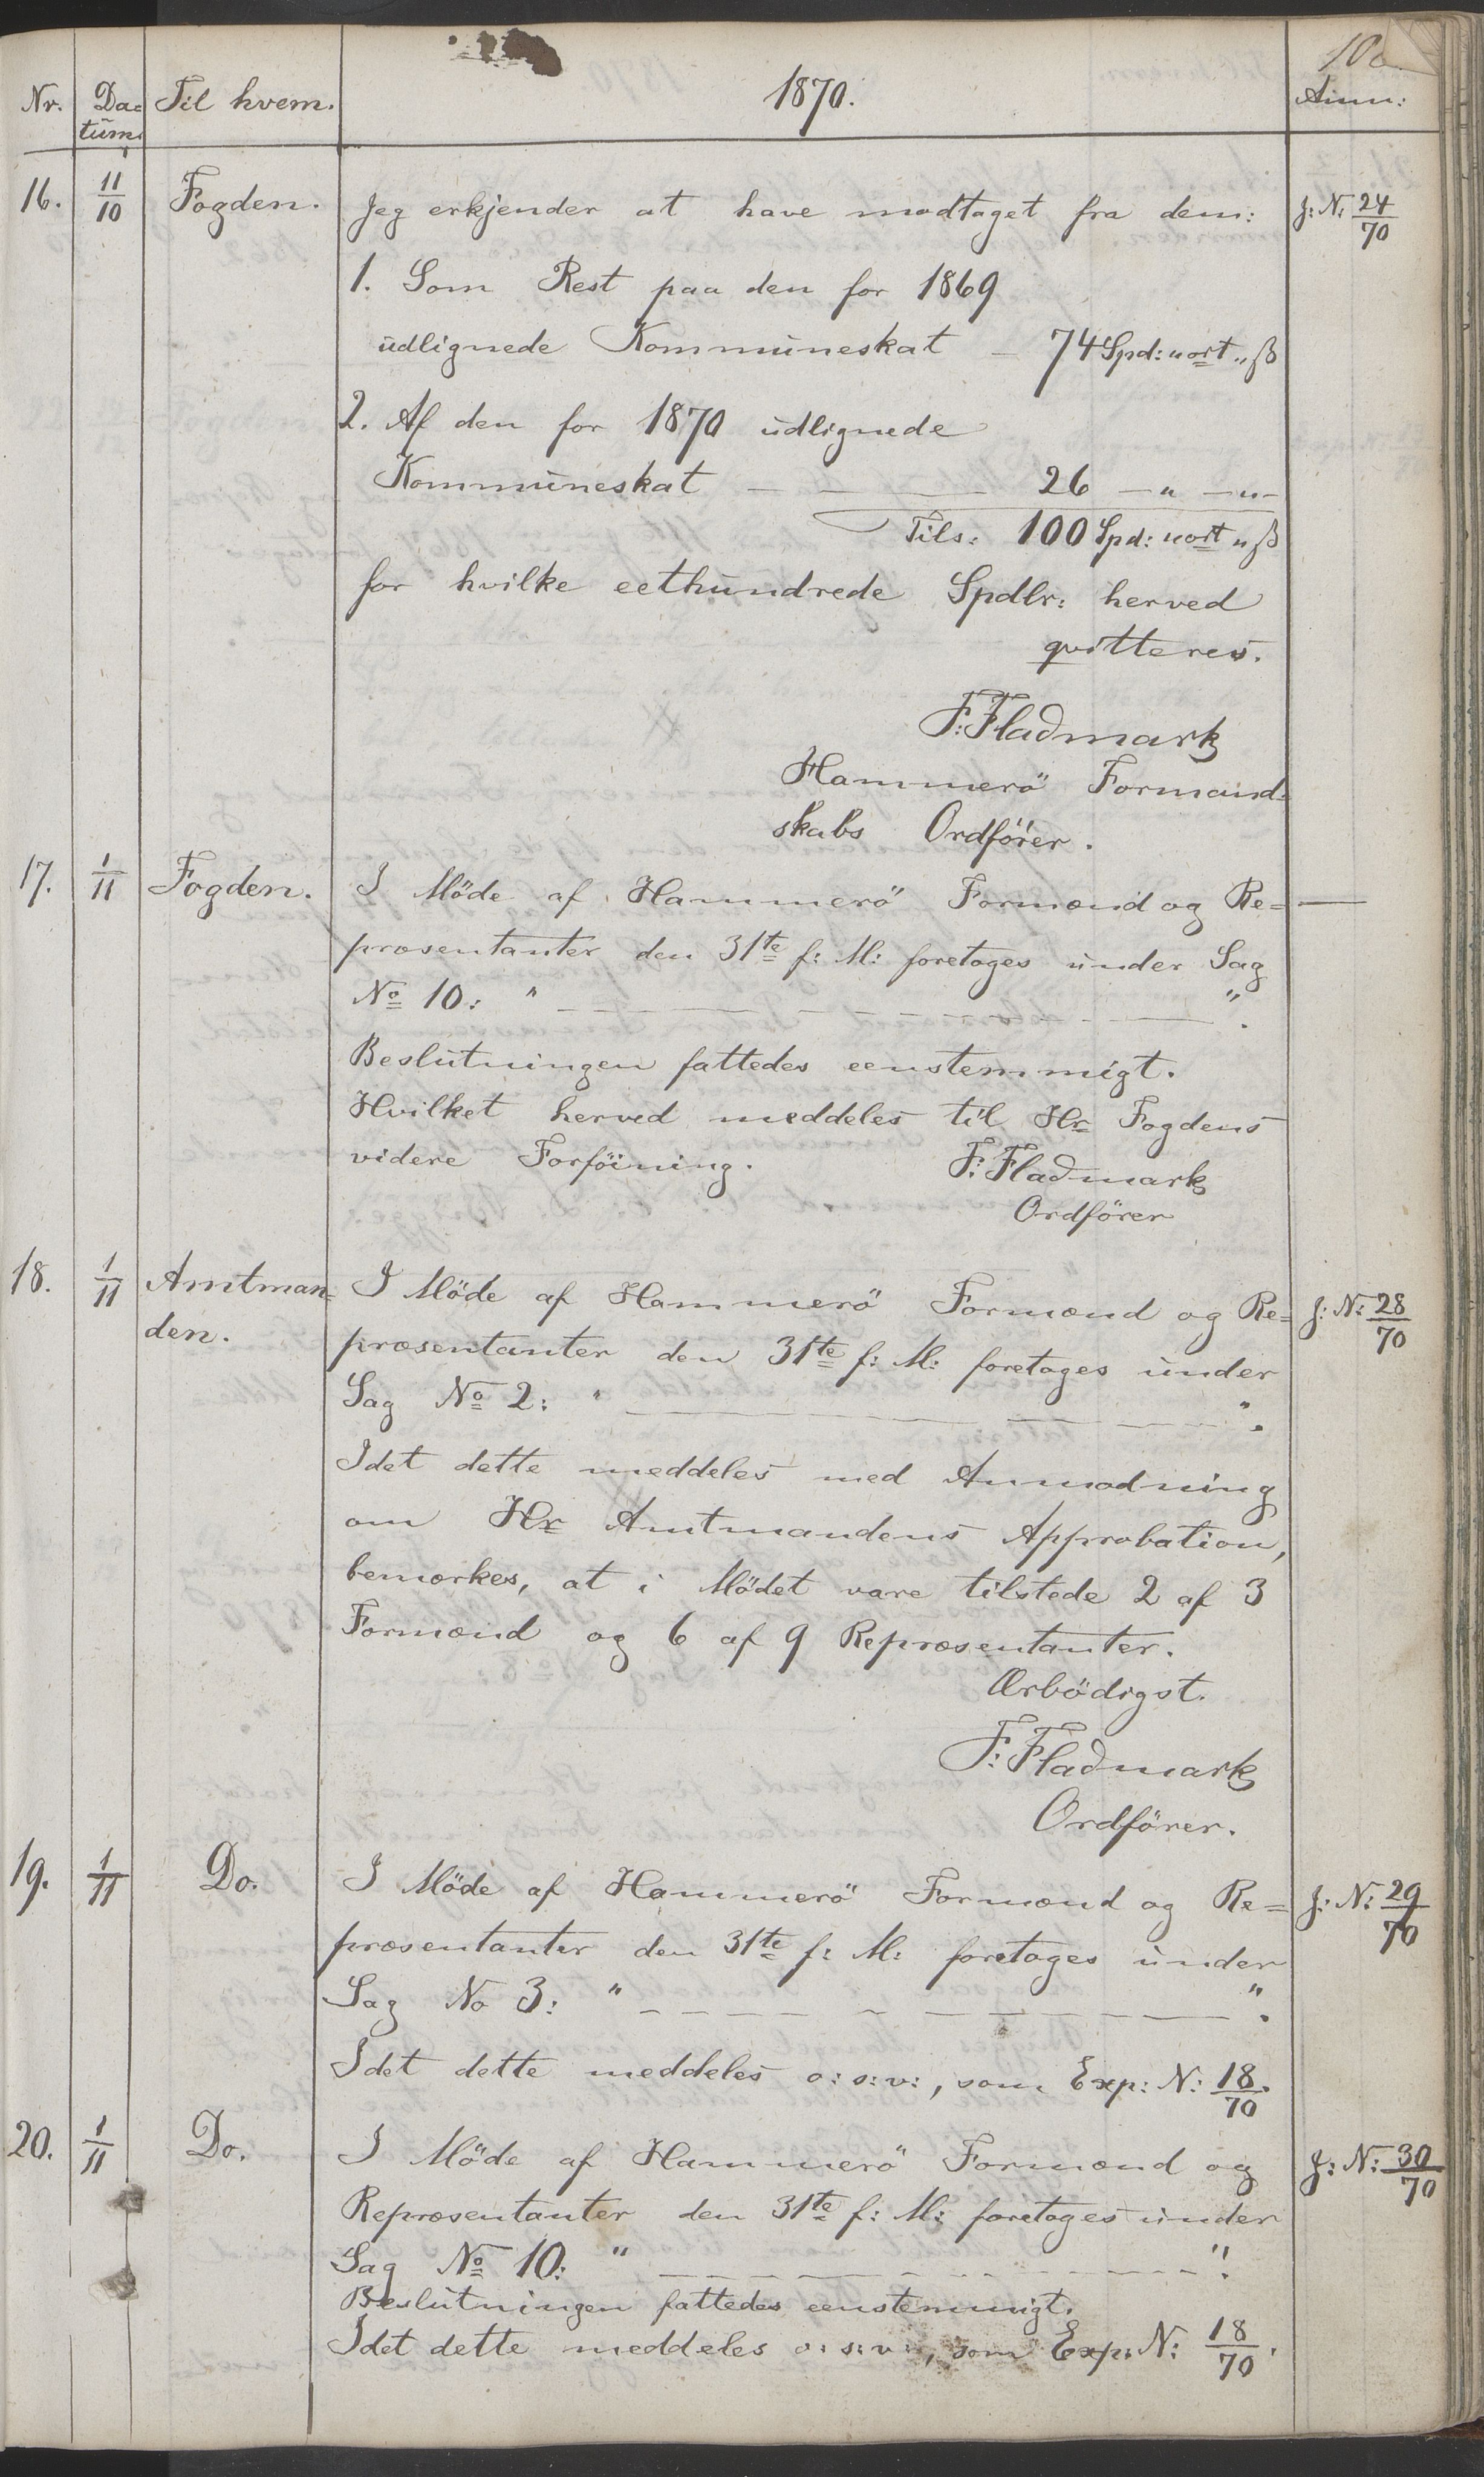 Nr. Da= Til hvem. 1870. Anm:
tum.
16. 11/10 Fogden. Jeg erkjender at have modtaget fra dem: J: N: 24/70
1. Som Rest paa den for 1869
udlignede Kommuneskat — 74 Spd: " ort " ß
2. Af den for 1870 udlignede
Kommuneskat — — — 26 — " — " —
Tils: 100 Spd: " ort " ß
for hvilke eethundrede Spdlr: herved
qvitteres.
F: Fladmark
Hammerö Formand=
skabs Ordförer.
17. 1/11 Fogden. I Möde af Hammerö Formænd og Re= —
præsentanter den 31te f: M: foretoges under Sag
No 10: " — — — — — — — — ".
Beslutningen fattedes eenstemmigt.
Hvilket herved meddeles til Hr Fogdens
videre Forföining. F: Fladmark
Ordförer
18. 1/11 Amtman= I Möde af Hammerö Formænd og Re= J: N: 28/70
den. præsentanter den 31te f: M: foretoges under
Sag No 2: " — — — — ".
Idet dette meddeles med Anmodning
om Hr Amtmandens Approbation,
bemærkes, at i Mödet vare tilstede 2 af 3
Formænd og 6 af 9 Repræsentanter.
Ærbödigst.
F: Fladmark
Ordförer.
19. 1/11 Do. I Möde af Hammerö Formænd og Re= J: N: 29/70
præsentanter den 31te f: M: foretoges under
Sag No 3: " — — — — — — — ".
Idet dette meddeles o: s: v:, som Exp: N: 18/70.
20. 1/11 Do. I Möde af Hammerö Formænd og J: N: 30/70
Repræsentanter den 31te f: M: foretoges under
Sag No 10: " — — — — — — — — ".
Beslutningen fattedes eenstemmigt.
Idet dette meddeles o: s: v:, som Exp: N: 18/70.